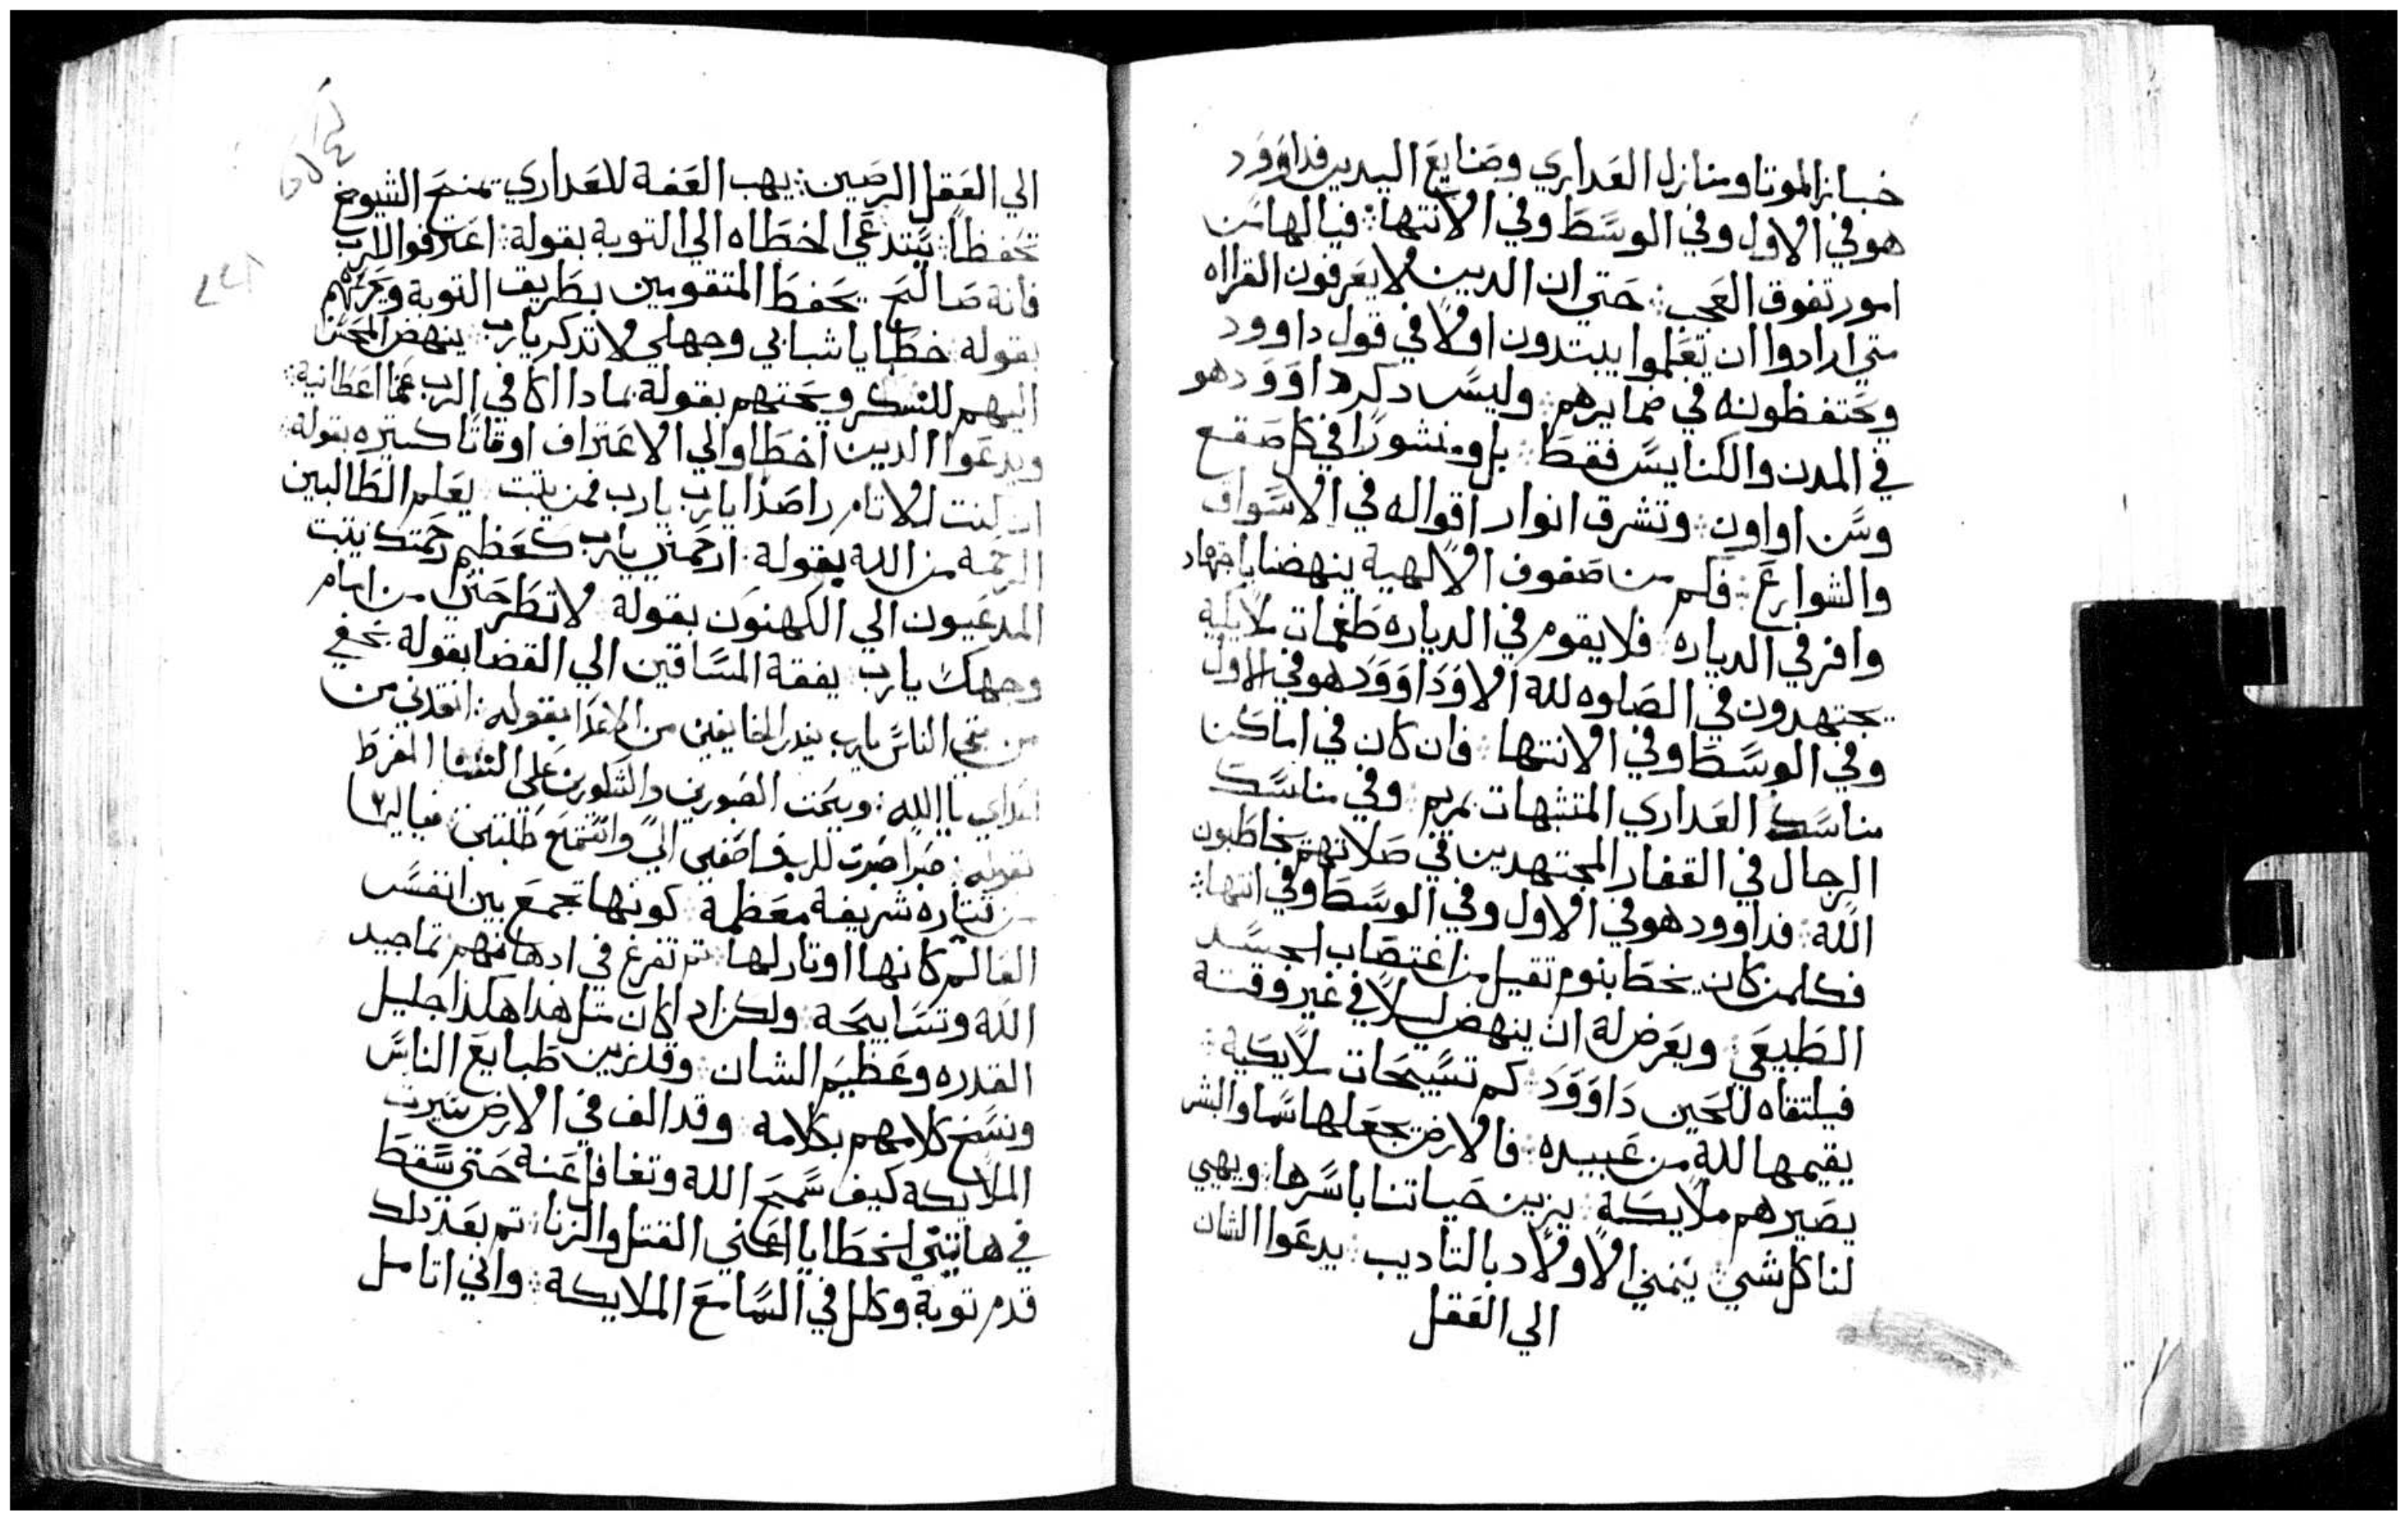 خبانز الموتا ومنازل العداري وصنايع اليدين فداوود
هو في الاول وفي الوسط وفي الانتها ؛ فيا لها من
امور تفوق العجب ؛ حتى ان الدين لا يعرفون القرااه
متي ارادوا ان تعلموا يبتدون اولا في قول داوود
ويحتفظونه في ضمايرهم ؛ وليس دكر داوود هو
في المدن والكنايس فقط ؛ بل ومنشورا في كل صقع
وسن اواون ؛ وتشرق انوار اقواله في الاسواق
والشوارع ؛ فكم من صفوف الالهية ينهضنا باجتهاد
وافر في الدياره فلا يقوم في الدياره طغمات ملايكية
يجتهدون في الصلوه لله الا وداوود هو في الاول
وفي الوسط وفي الانتها ؛ فان كان في اماكن
مناسك العداري المتشبهات بمريم ؛ وفي مناسك
الرجال في القفار المجتهدين في صلاتهم يخاطبون
الله ؛ فداوود هو في الاول وفي الوسط وفي انتها ؛
فكلمن كان يخطا بنوم تقيل من اغتصاب الجسد
الطبيعي ؛ ويعرض له ان ينهض ليلا في غير وقتة
فيلتقاه للحين داوود ؛ كم تسبيحات ملايكية ؛
يقيمها لله من عبيده ؛ فالارض يجعلها سما والبشر
يصيرهم ملايكة ؛ يزين حياتنا باسرها ؛ ويهي
لنا كل شي ؛ ينمي الاولاد بالتاديب ؛ يدعوا الشان
الي العقل
الي العقل الرصين ؛ يهب العفة للعداري تمنح الشيوخ
تحفظا ؛ يستدعي الخطاه الي التوبة بقولة ؛ اعترفوا للرب
فانة صالح يحفظ المتقومين بطريق التوبة ويحرسهم
بقولة خطايا شبابي وجهلي لا تدكر يارب ينهض
اليهم للشكر ويحتهم بقولة بمادا اكافي الرب عما اعطانية ؛
ويدعوا الدين اخطاوا الي الاعتراف اوقاتا كتيره بقولة
ان كنت للاتام راصدا يارب يارب فمن يتبت يعلم الطالبين
الرحمة من الله بقولة ؛ ارحمني يارب كعظيم رحمتك يتبت
المدعيون الي الكهنوت بقولة لا تطرحني من امام
وجهك يارب يفقة المساقين الي القضا بقولة نجني
من الناس يارب ينقد الخايفين من الاعدا بقوله ؛ انقدني من
اعداي يا الله ؛ ويحت الصبورين والشكورين علي المفرط
بقوله ؛ صبرا صبرت للرب فاصغي الي واستمع طلبتي فيا لها
من قيتاره شريفة معظمة كونها تجمع بين انفس
العالم كانها اوتار لها ؛ تم تفرغ في ادهانهم تماجيد
الله وتسابيحة ؛ ولكن اد كان متل هدا هكدا جليل
القدره وعظيم الشان ؛ وقد زين طبايع الناس
ونسخ كلامهم بكلامه ؛ وقد الف في الارض سيرت
الملايكه كيف سمح الله وتغافل عنة حتي سقط
في هاتين الخطايا اعني القتل والزنا ؛ تم بعد دلك
قدم توبة وكل في السامع الملايكة ؛ واني اتامل